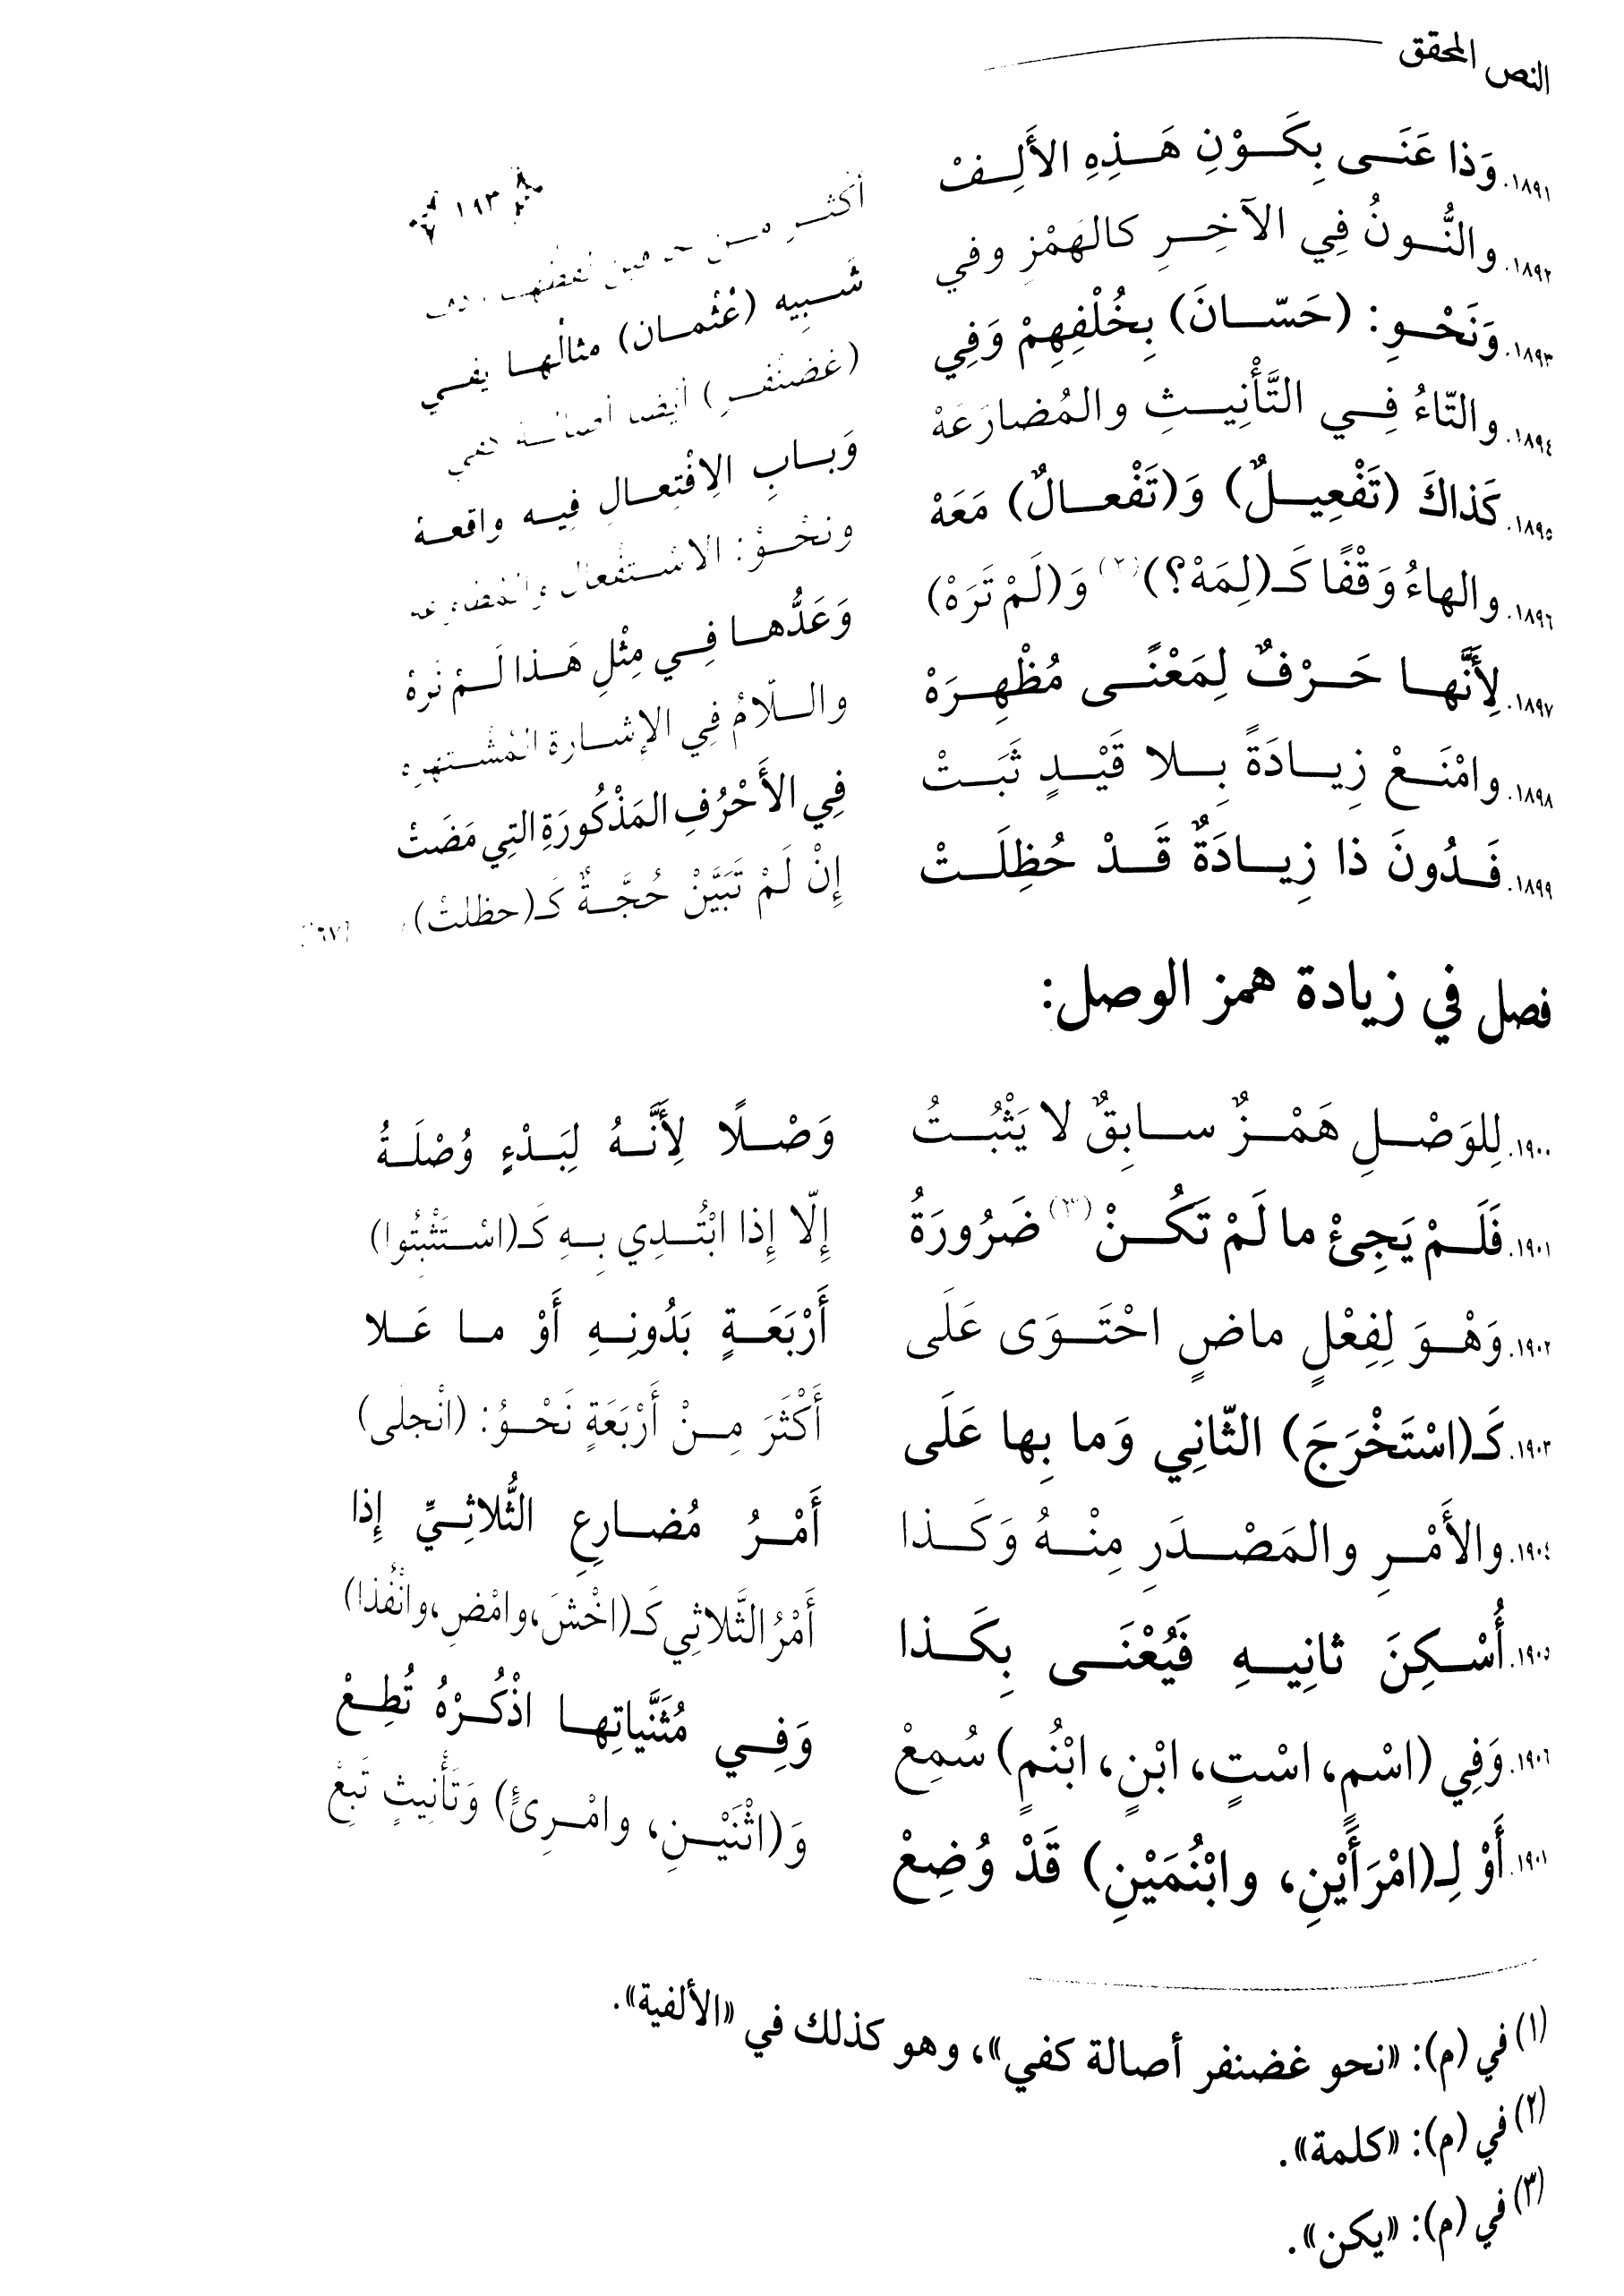 النص المحقق
١٩٣
١٨٩١. وَذا عَنَـى بِكَـوْنِ هَـذِهِ الأَلِـفْ أكثـر
١٨٩٢. والنُّـونُ فِي الآخِـرِ كالهَمْزِ وفي شَـبِيهِ (عُثْمـان) مثالُهـا يفـي
١٨٩٣. وَنَحْـوِ: (حَسّـانَ) بِخُلْفِهِمْ وَفِي (غضنْفـرٍ) أيضـا
١٨٩٤. والتّاءُ فِـي التَّأْنِيـثِ والمُضارَعَهْ وَبـابِ الِافْتِعـالِ فِيـه واقعـهْ
١٨٩٥. كَذاكَ (تَفْعِيـلٌ) وَ(تَفْعـالٌ) مَعَهْ ونحْـوُ: الاسْـتفْعال
١٨٩٦. والهاءُ وَقْفًا كَـ(لِمَهْ؟)(٢) وَ(لَمْ تَرَهْ) وَعَدُّهـا فِـي مِثْلِ هَـذا لَـمْ نَرهْ
١٨٩٧. لِأَنَّهـا حَـرْفٌ لِمَعْنًـى مُظْهِـرَهْ والـلّامُ فِي الإشـارة المُشْـتهرهْ
١٨٩٨. وامْنَـعْ زِيـادَةً بِـلا قَيْـدٍ ثَبَـتْ فِي الأَحْرُفِ المَذْكُورَةِ التِي مَضَتْ
١٨٩٩. فَـدُونَ ذا زِيـادَةٌ قَـدْ حُظِلَـتْ إِنْ لَمْ تَبَيَّنْ حُجَّـةٌ كَـ(حظلتْ)
فصل في زيادة همز الوصل:
١٩٠٠. لِلوَصْـلِ هَمْـزٌ سـابِقٌ لا يَثْبُـتُ وَصْـلًا لِأَنَّـهُ لِبَـدْءٍ وُصْلَـةُ
١٩٠١. فَلَـمْ يَجِئْ ما لَمْ تَكُـنْ(٣) ضَرُورَةُ إِلّا إِذا ابْتُـدِي بِـهِ كَـ(اسْـتَثْبِتُوا)
١٩٠٢. وَهْـوَ لِفِعْلٍ ماضٍ احْتَـوَى عَلَى أَرْبَعَـةٍ بَدُونِـهِ أَوْ مـا عَـلا
١٩٠٣. كَـ(اسْتَخْرَجَ) الثّانِي وَما بِها عَلَى أَكْثَرَ مِـنْ أَرْبَعَةٍ نَحْـوُ: (انْجلى)
١٩٠٤. والأَمْـرِ والمَصْـدَرِ مِنْـهُ وَكَـذا أَمْـرُ مُضـارِعِ الثُّلاثِـيِّ إِذا
١٩٠٥. أُسْـكِنَ ثانِيـهِ فَيُعْنَـى بِكَـذا أَمْرُ الثَّلاثِي كَـ(اخْشَ، وامْضِ، وانْفُذا)
١٩٠٦. وَفِي (اسْمٍ، اسْتٍ، ابْنٍ، ابْنُمٍ) سُمِعْ وَفِـي مُثَنَّياتِهـا اذْكُـرْهُ تُطِـعْ
١٩٠١. أَوْ لِـ(امْرَأَيْنِ، وابْنُمَيْنِ) قَدْ وُضِعْ وَ(اثْنَيْـنِ، وامْـرِئٍ) وَتَأْنِيثٍ تَبِعْ
(١) في (م): «نحو غضنفر أصالة كفي»، وهو كذلك في «الألفية».
(٢) في (م): «كلمة».
(٣) في (م): «يكن».